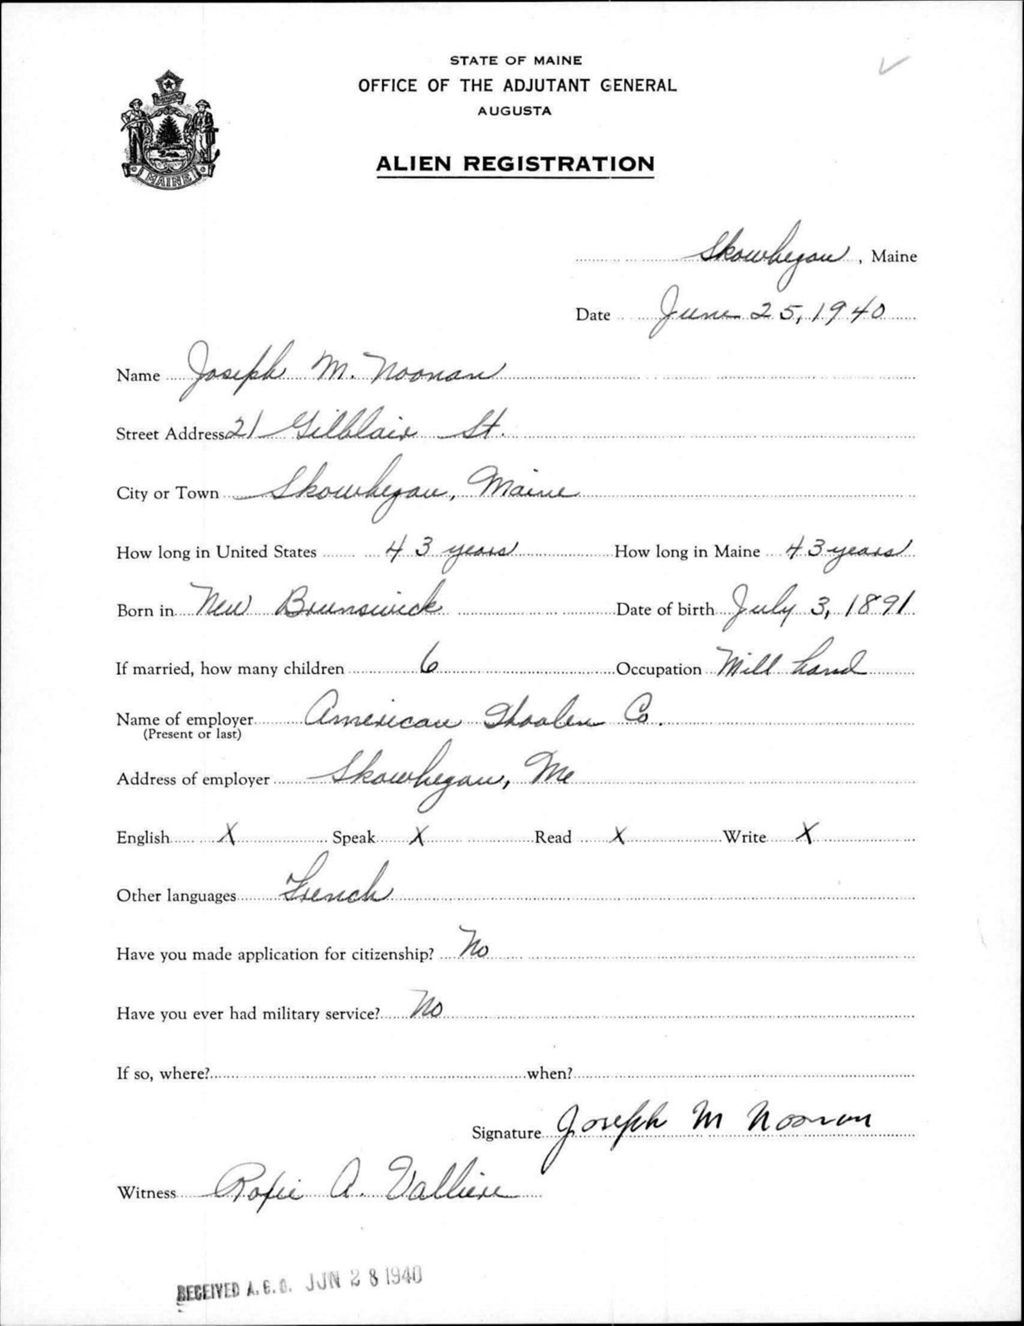 STATE OF MAINE
OFFICE OF THE ADJUTANT GENERAL
AUGUSTA
ALIEN REGISTRATION
MAINE
Skowhegan, Maine
Date June 25, 1940
Name Joseph M. Noonan
Street Address 21 Gilblair St.
City or Town Skowhegan, Maine
How long in United States 43 years How long in Maine 43 years
Born in New Brunswick Date of birth July 3, 1891
If married, how many children 6 Occupation Mill hand
Name of employer American Woolen Co.
(Present or last)
Address of employer Skowhegan, Me
English X Speak X Read X Write X
Other languages French
Have you made application for citizenship? No
Have you ever had military service? No
If so, where? when?
Signature Joseph M Noonan
Witness A. Valliere
RECEIVED A.G.O. JUN 28 1940